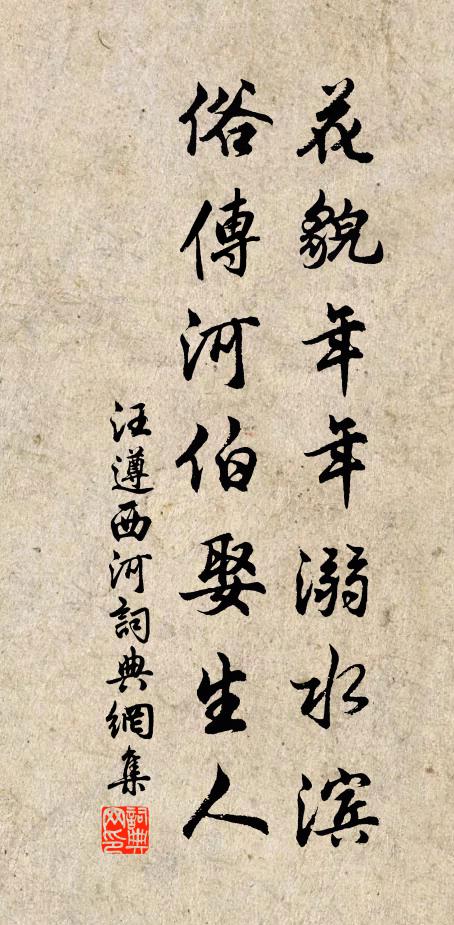 花貌年年溺水滨
俗傳河伯娶生人
汪遵西河詞典網集
詞典网印